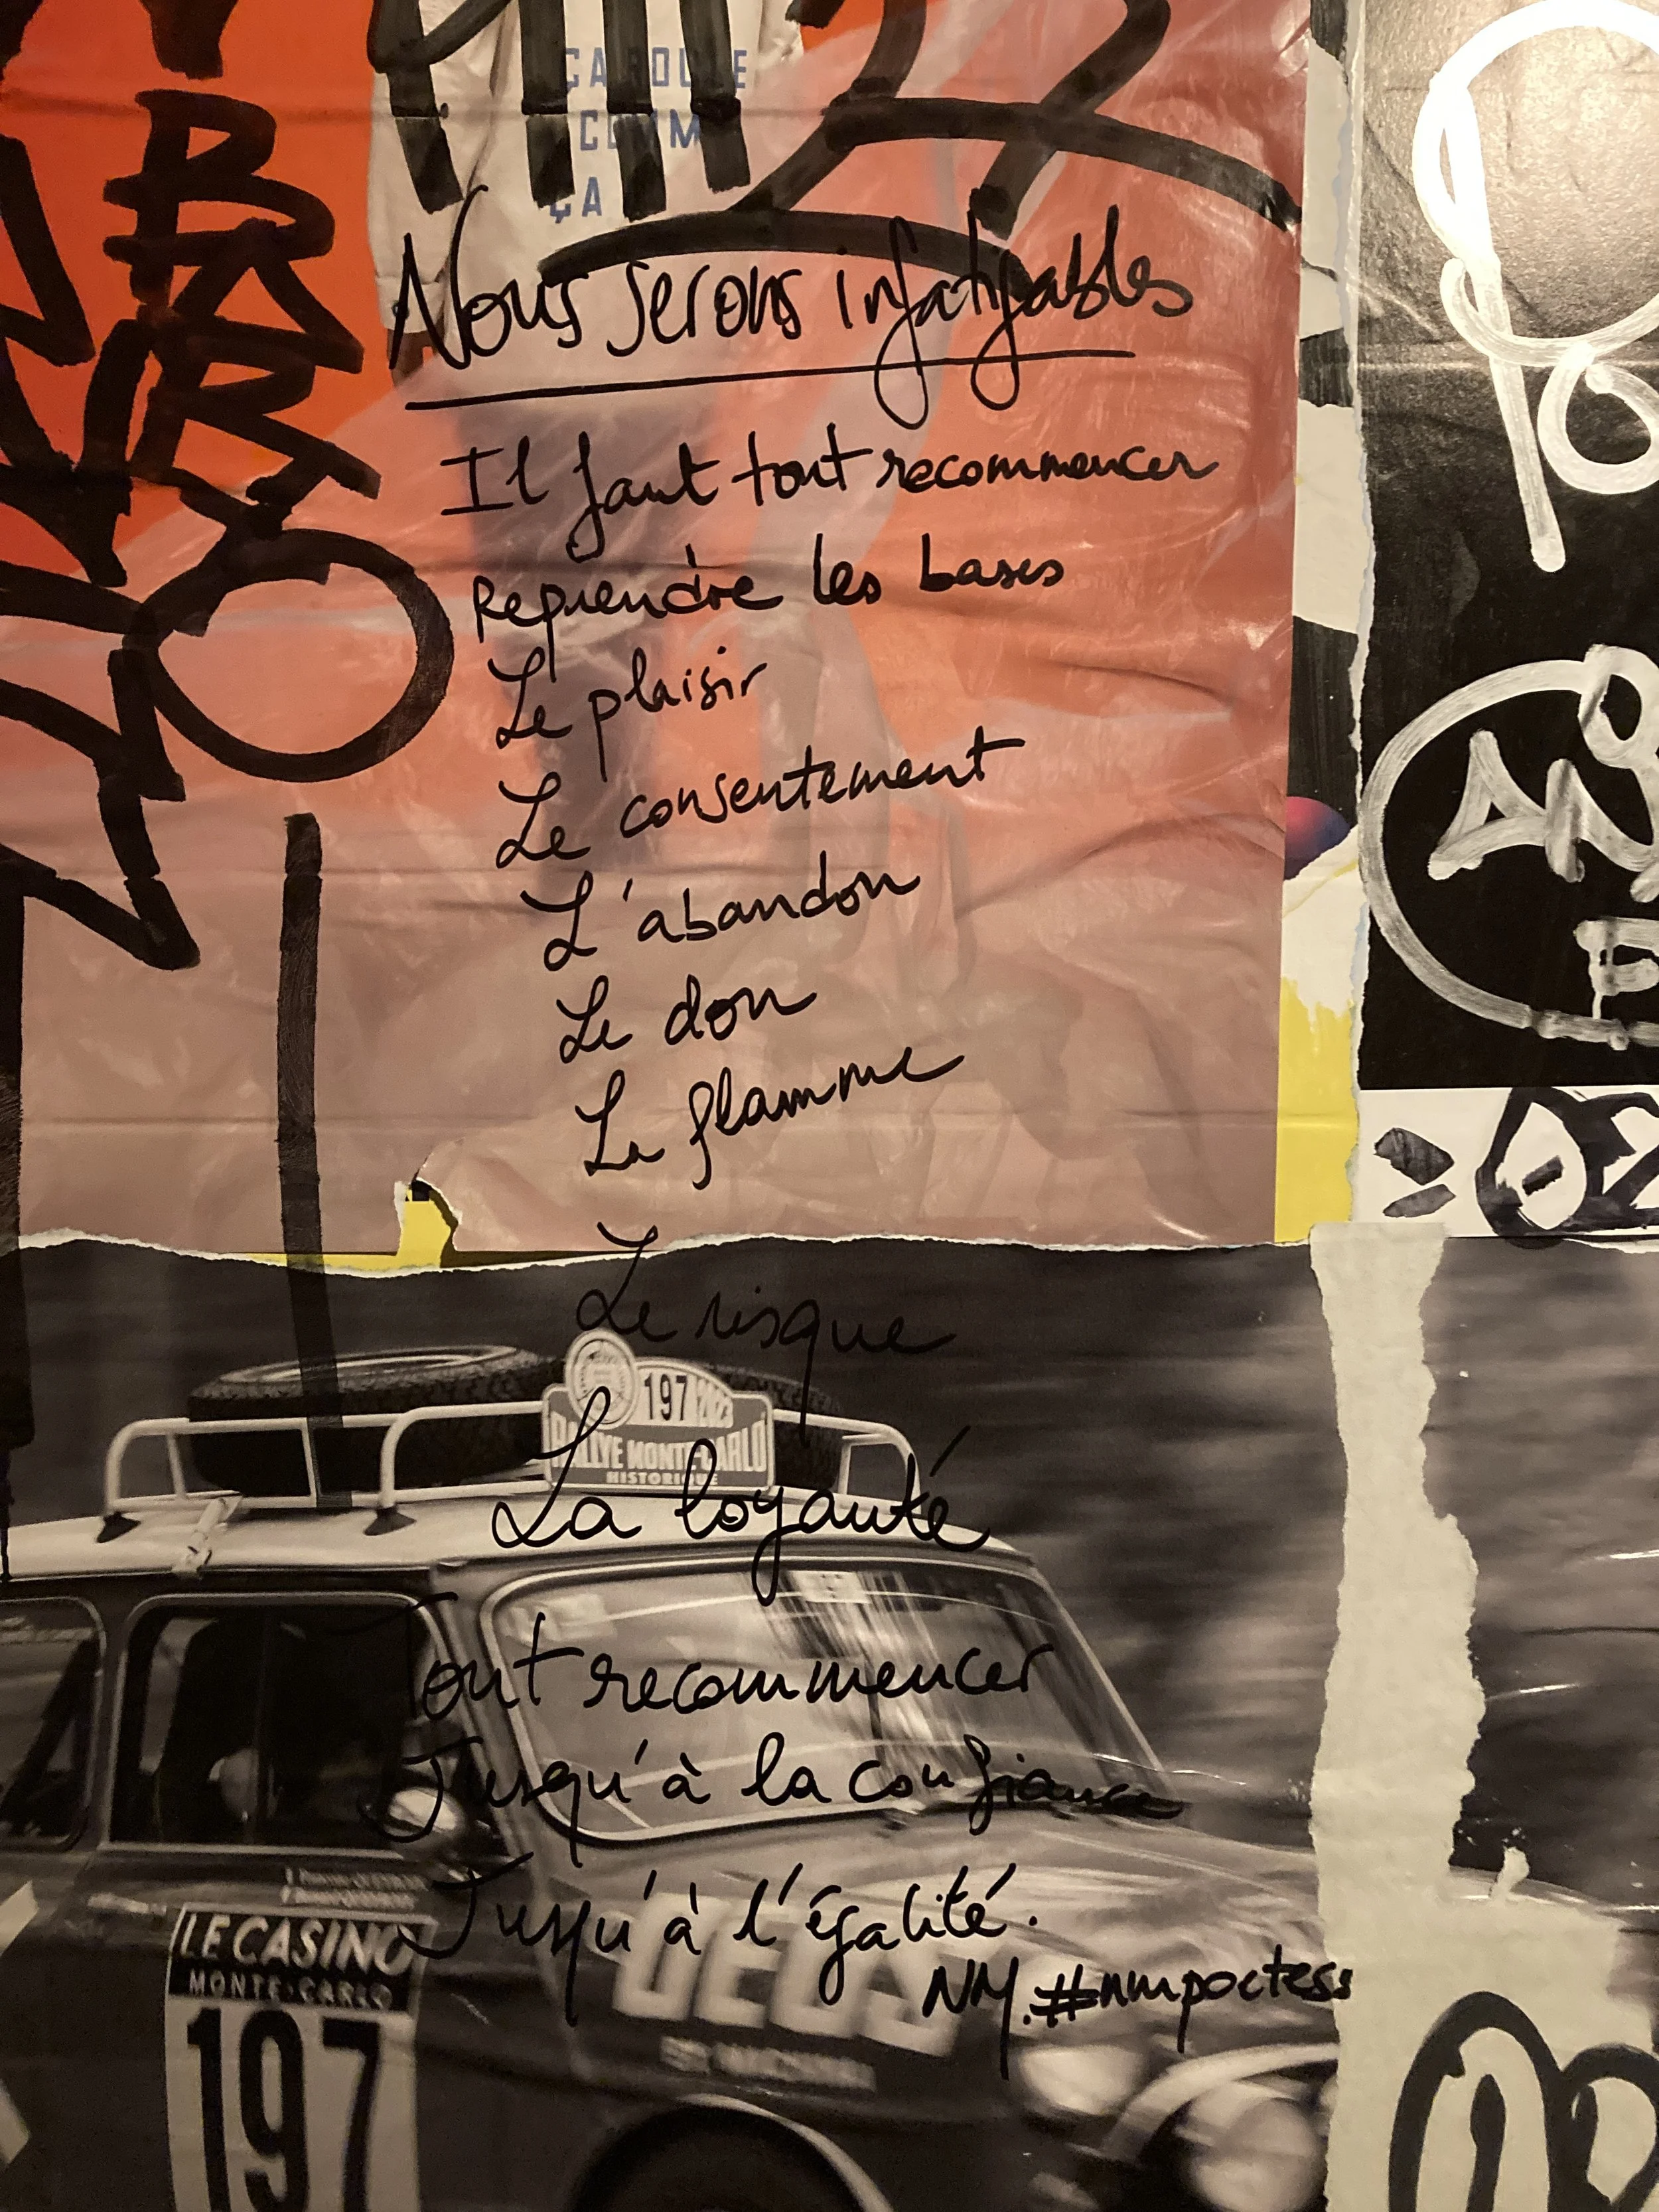 CAROLINE
COMM
ÇA
Nous serons infatigables
Il faut tout recommencer
Reprendre les bases
Le plaisir
Le consentement
L'abandon
Le don
La flamme
Le risque
197
RALLYE MONTE-CARLO
HISTORIQUE
La loyauté
Tout recommencer
Jusqu'à la confiance
Jusqu'à l'égalité.
NM. #nmpoetess
LE CASINO
MONTE-CARLO
197